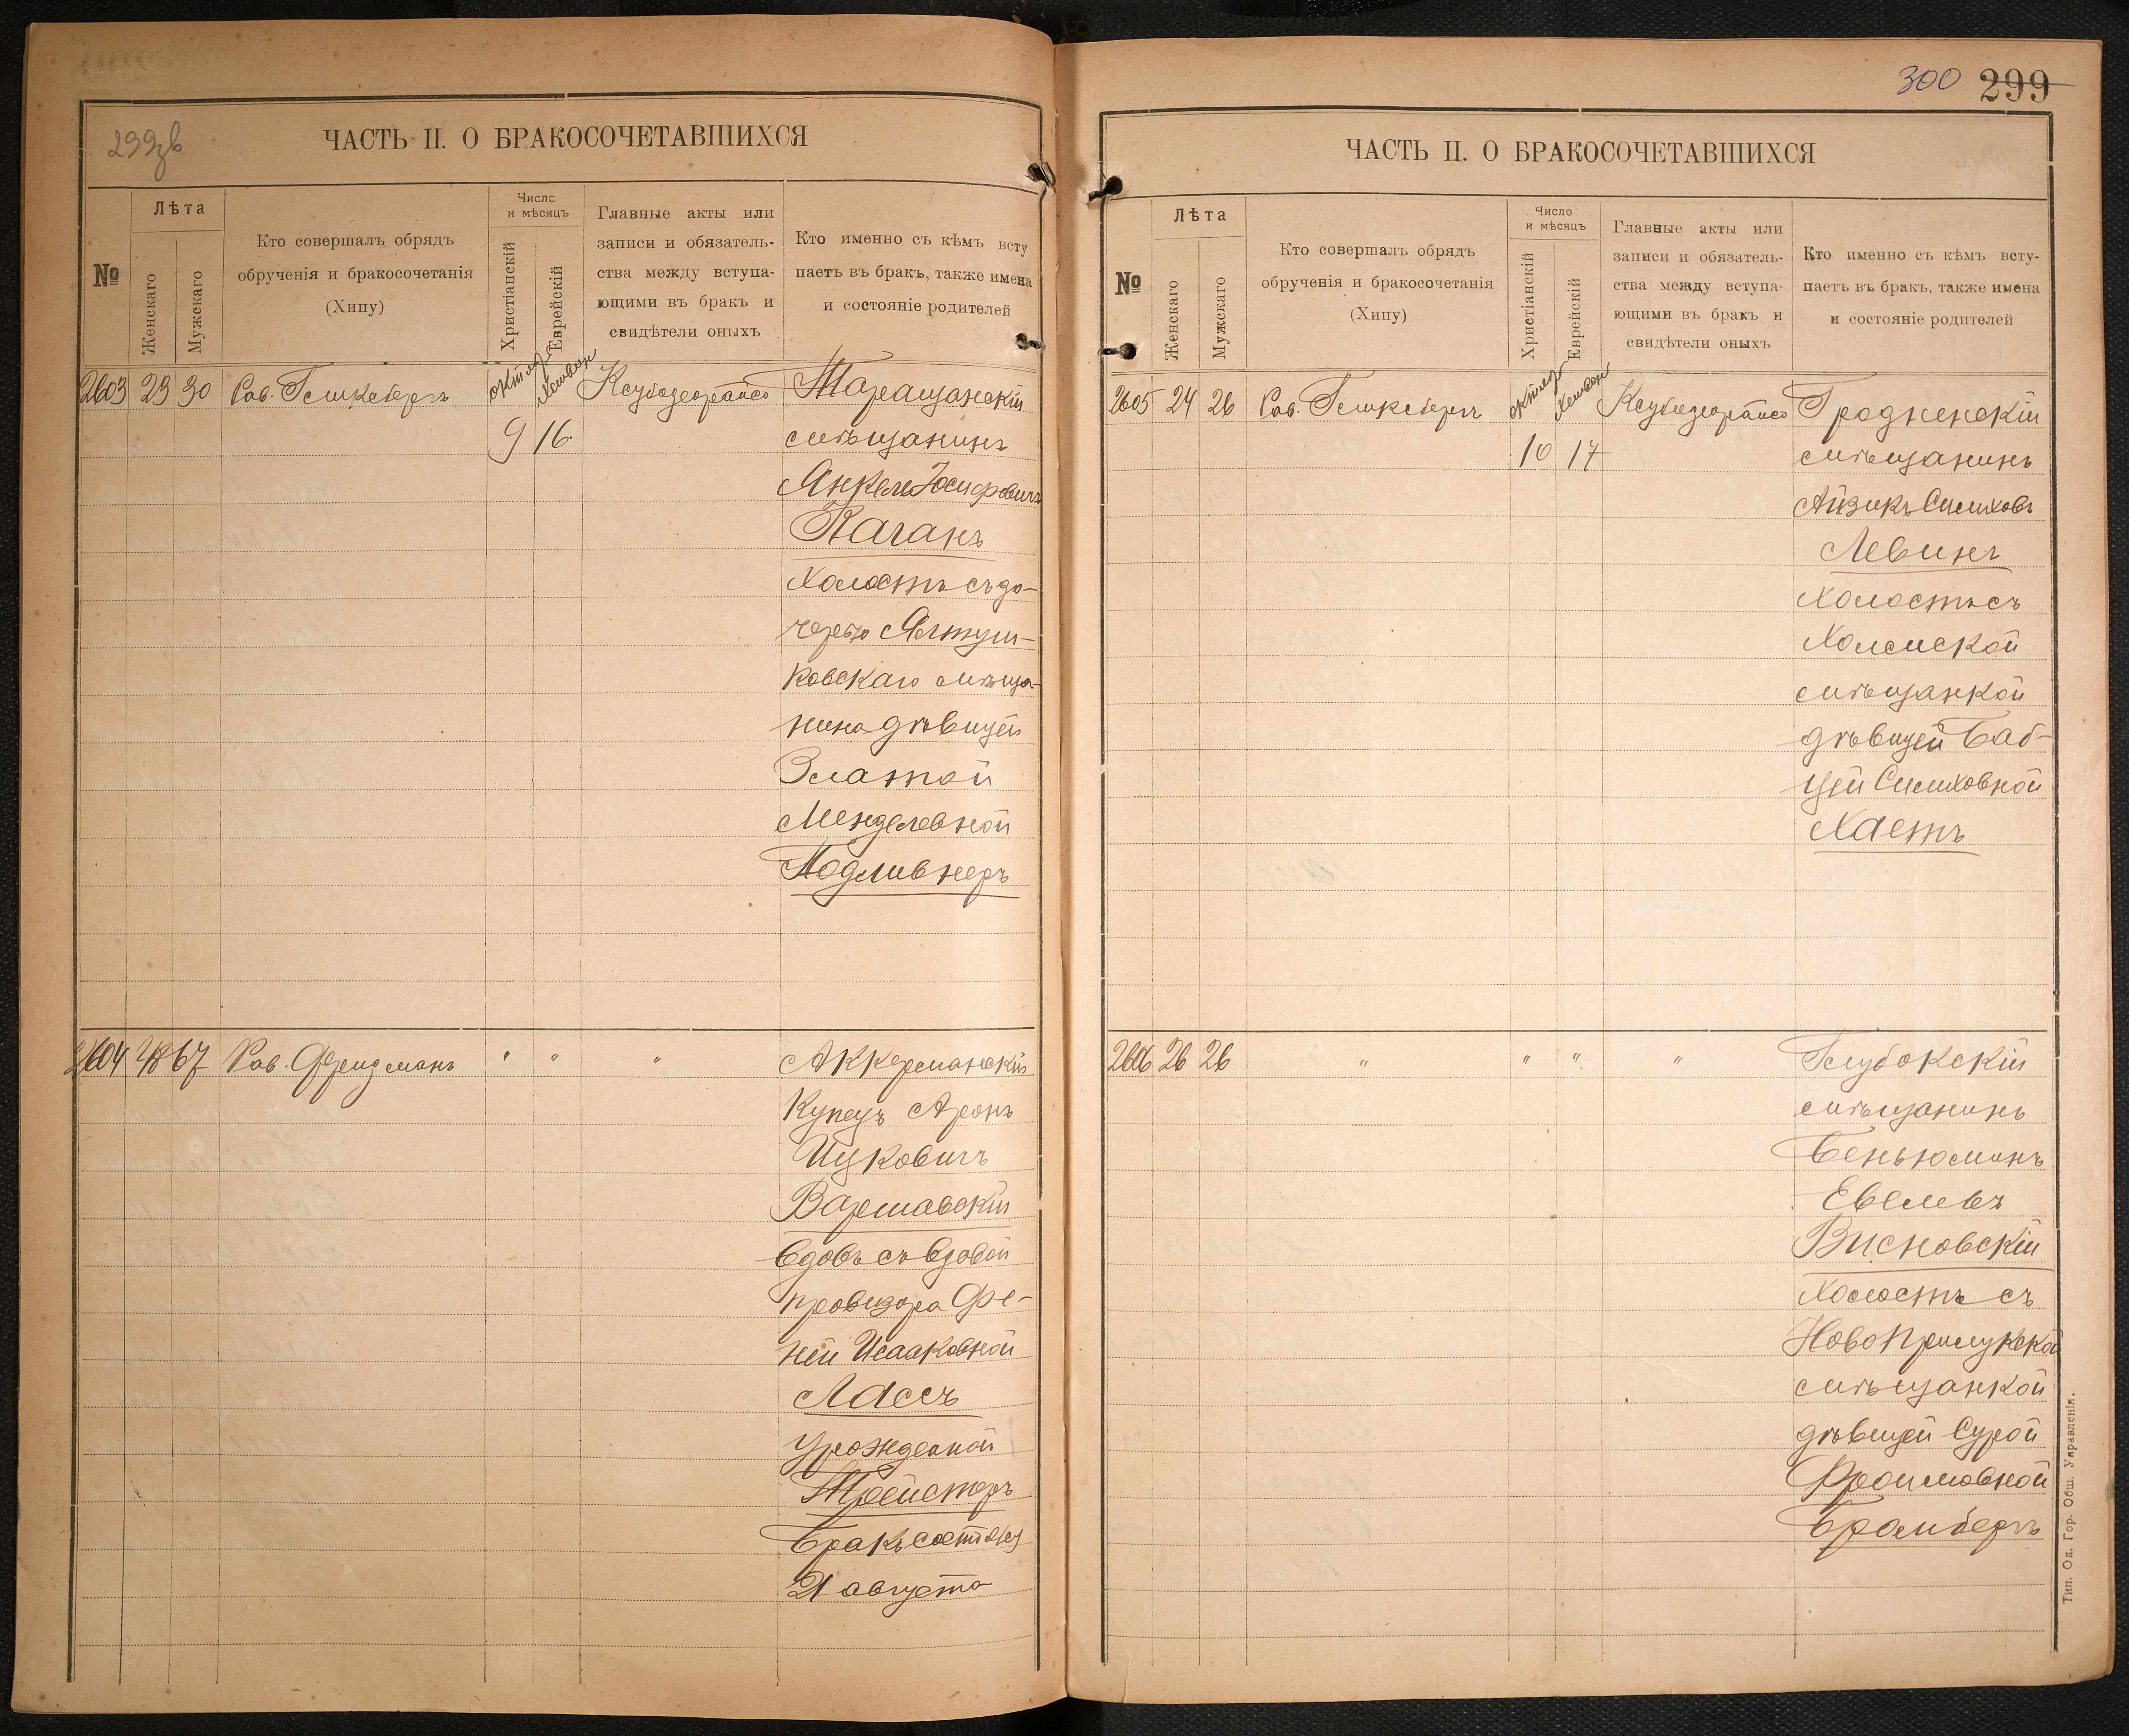 299зв
ЧАСТЬ II. О БРАКОСОЧЕТАВШИХСЯ
№
Лѣта
Женскаго
Мужскаго
Кто совершалъ обрядъ
обрученія и бракосочетанія
(Хипу)
Число
и мѣсяцъ
Христіанскій
Еврейскій
Главные акты или
записи и обязатель-
ства между вступа-
ющими въ бракъ и
свидѣтели оныхъ
Кто именно съ кѣмъ всту
паетъ въ бракъ, также имена
и состояніе родителей
2603 23 30 Рав. Гликсбергъ
9 16
Таращанскій
мѣщанинъ
Янкель Іосифовичъ
Каганъ
Холостъ съ до-
черью Ялтуш-
ковскаго мѣща-
нина дѣвицей
Златой
Менделевной
Подливнеръ
2604 48 67 Рав. Фридманъ " " "
Аккерманскій
Купецъ Аронъ
Ицковичъ
Варшавскій
Вдовъ съ вдовой
провизора Фе-
ней Исааковной
Лассъ
урожденной
Тройстеръ
Бракъ сост
21 августа
300 299
ЧАСТЬ II. О БРАКОСОЧЕТАВШИХСЯ
№
Лѣта
Женскаго
Мужскаго
Кто совершалъ обрядъ
обрученія и бракосочетанія
(Хипу)
Число
и мѣсяцъ
Христіанскій
Еврейскій
Главные акты или
записи и обязатель-
ства между вступа-
ющими въ бракъ и
свидѣтели оныхъ
Кто именно съ кѣмъ всту-
паетъ въ бракъ, также имена
и состояніе родителей
2605 24 26 Рав. Гликсбергъ
10 17
Гродненскій
мѣщанинъ
Айзикъ Симховъ
Левинъ
Холостъ съ
Холмской
мѣщанкой
дѣвицей Баб-
цей Симховной
Хастъ
2606 26 26 " " " "
Глубокскій
мѣщанинъ
Беньюминъ
Евелевъ
Висновскій
Холостъ съ
Новоприлукской
мѣщанкой
дѣвицей Сурой
Фроимовной
Бромбергъ
Тип. Од. Гор. Общ. Управленія.